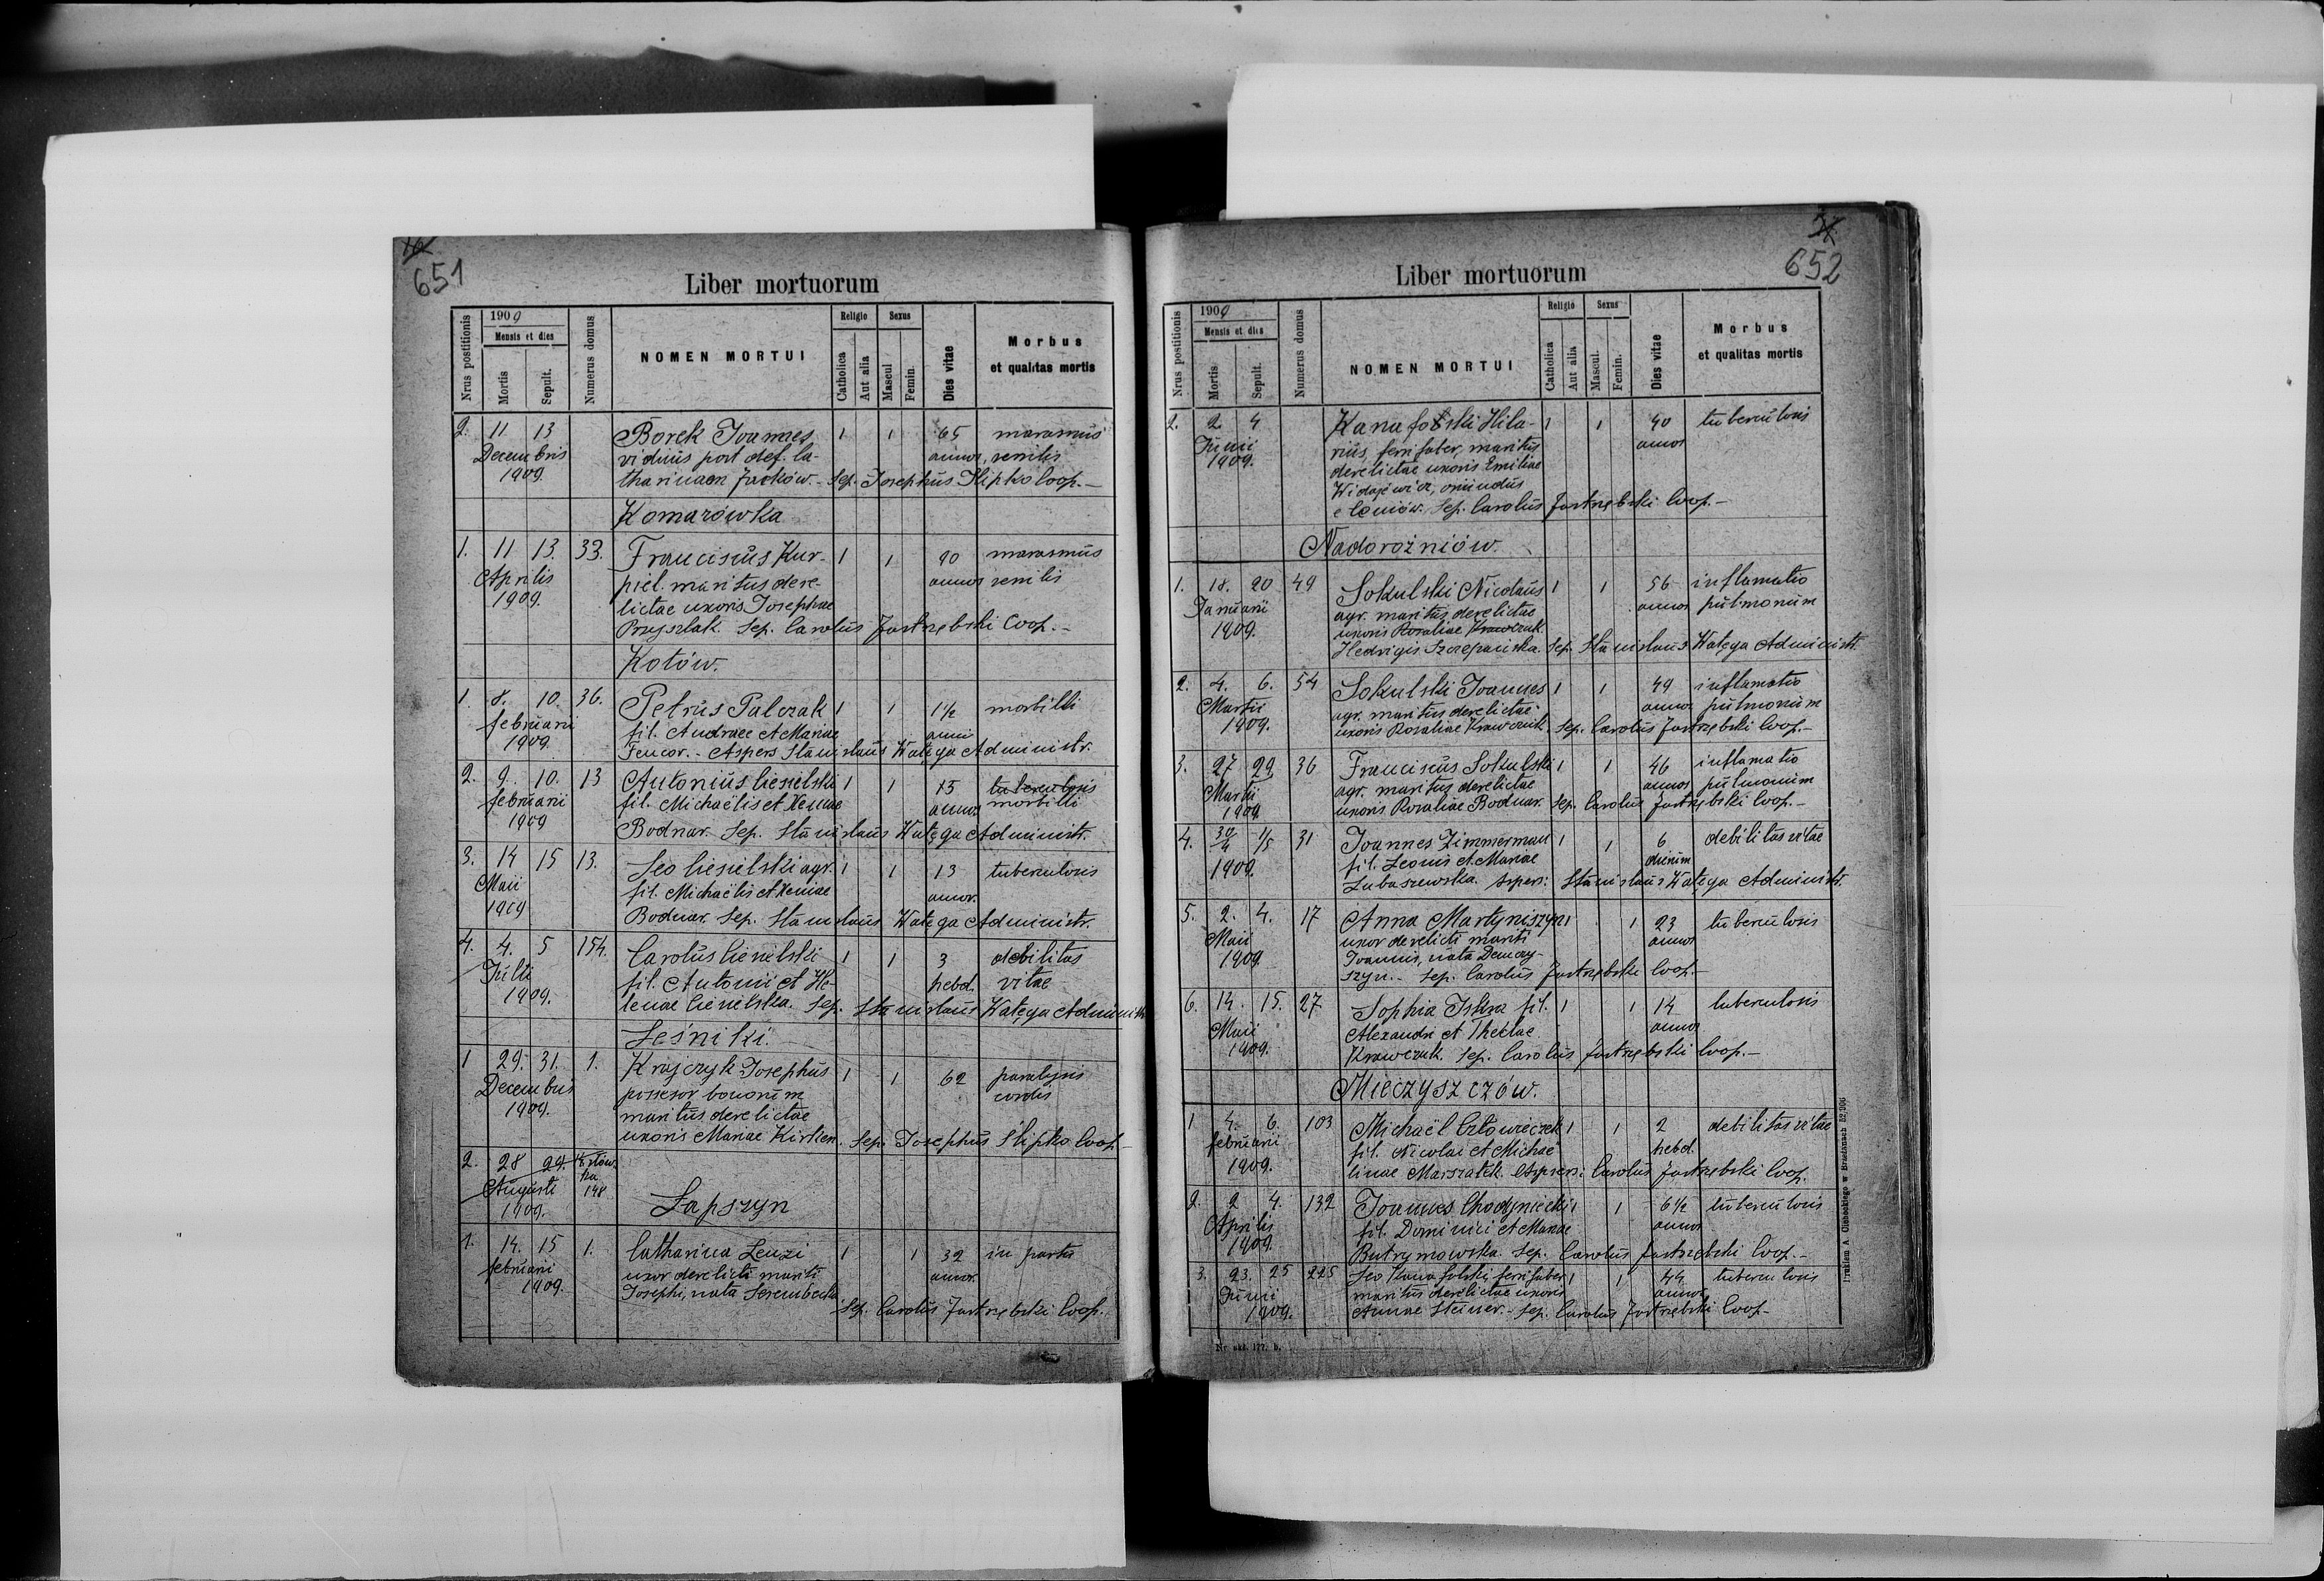 16
651
Liber mortuorum
Nrus postitionis
1909
Mensis et dies
Mortis
Sepult.
Numerus domus
NOMEN MORTUI
Religio
Catholica
Aut alia
Sexus
Mascul
Femin.
Dies vitae
Morbus
et qualitas mortis
2. 11 13 Borek Joannes 1 1 65 marasmus
Decembris viduus post def. Ca- annor. senilis
1909. tharinam Jacków. - Sep. Josephus Slipko Coop. -
Komarówka
1. 11 13. 33. Franciscus Kur- 1 1 90 marasmus
Aprilis piel. maritus dere- annor senilis
1909. lictae uxoris Josephae
Przyszlak. Sep. Carolus Jastrzębski Coop. -
Kotów.
1. 8. 10. 36. Petrus Palczak 1 1 1½ morbilli
februarii fil. Andreae et Mariae anni
1909. Fencor. - Aspers. Stanislaus Watęga Administr.
2. 9. 10. 13 Antonius Cieselski 1 1 15 tuberculosis
februarii fil. Michaëlis et Xeniae annor. morbilli
1909 Bodnar. Sep. Stanislaus Watęga Administr.
3. 14 15 13. Leo Cieselski agr. 1 1 13 tuberculosis
Maii fil. Michaëlis et Xeniae annor.
1909 Bodnar. Sep. Stanislaus Watęga Administr.
4. 4. 5 154. Carolus Cieselski 1 1 3 debilitas
Julii fil. Antonii et He- hebd. vitae
1909. lenae Cieselska. Sep. Stanislaus Watęga Administr.
Leśniki.
1 29. 31. 1. Krajczyk Josephus 1 1 62 paralysis
Decembris possesor bonorum cordis
1909. maritus derelictae
uxoris Mariae Kirkien. Sep. Josephus Slipko Coop -
2. 28 29.
Augusti 148
1909. Łapszyn
1. 14. 15 1. Catharina Lenzi 1 1 32 in partu
februarii uxor derelicti mariti annor.
1909. Josephi, nata Serembecka
Sep. Carolus Jastrzębski Coop.
652
Liber mortuorum
Nrus postitionis
1909
Mensis et dies
Mortis
Sepult.
Numerus domus
NOMEN MORTUI
Religio
Catholica
Aut alia
Sexus
Mascul.
Femin.
Dies vitae
Morbus
et qualitas mortis
2. 2 4 Kanafolski Hila- 1 1 40 tuberculosis
Junii rius, ferrifaber, maritus annor
1909. derelictae uxoris Emiliae
Widajewicz, oriundus
e Coniów. Sep. Carolus Jastrzębski Coop. -
Nadorożniów.
1. 18. 20 49 Sokulski Nicolaus 1 1 56 inflamatio
Januarii agr. maritus derelictae annor pulmonum
1909. uxoris Rosaliae Krawczuk
Hedvigis Szczepańska. Sep. Stanislaus Watęga Administr.
2. 4. 6. 54 Sokulski Joannes 1 1 49 inflamatio
Martii agr. maritus derelictae annor. pulmonum
1909. uxoris Rosaliae Krawczuk. Sep. Carolus Jastrzębski Coop. -
3. 27 29 36 Franciscus Sokulski 1 1 46 inflamatio
Martii agr. maritus derelictae annor pulmonum
1909 uxoris Rosaliae Bodnar. Sep. Carolus Jastrzębski Coop. -
4. 30/4 1/5 31 Joannes Zimmerman 1 1 6 debilitas vitae
1909. fil. Leonis et Mariae dierum
Lubaszewska. Aspers: Stanislaus Watęga Administr.
5. 2. 4. 17 Anna Martyniszyn 1 1 23 tuberculosis
Maii uxor derelicti mariti annor
1909. Joannis, nata Demczy-
szyn. - Sep. Carolus Jastrzębski Coop. -
6. 14. 15. 27 Sophia Iskra fil. 1 1 14 tuberculosis
Maii Alexandri et Theclae annor
1909. Krawczuk. Sep. Carolus Jastrzębski Coop. -
Mieczyszczów.
1 4. 6. 103 Michaël Człowieczek 1 1 2 debilitas vitae
februarii fil. Nicolai et Michae- hebd.
1909. linae Marszałek. Aspers: Carolus Jastrzębski Coop.
2. 2 4. 132 Joannes Chodyniecki 1 1 6½ tuberculosis
Aprilis fil. Dominici et Mariae annor
1909. Butrymowska. Sep. Carolus Jastrzębski Coop. -
3. 23. 25 225 Leo Kanafolski, ferrifaber 1 1 44 tuberculosis
Junii maritus derelictae uxoris annor
1909. Annae Steiner. - Sep. Carolus Jastrzębski Coop -
Nr. skł. 177. b.